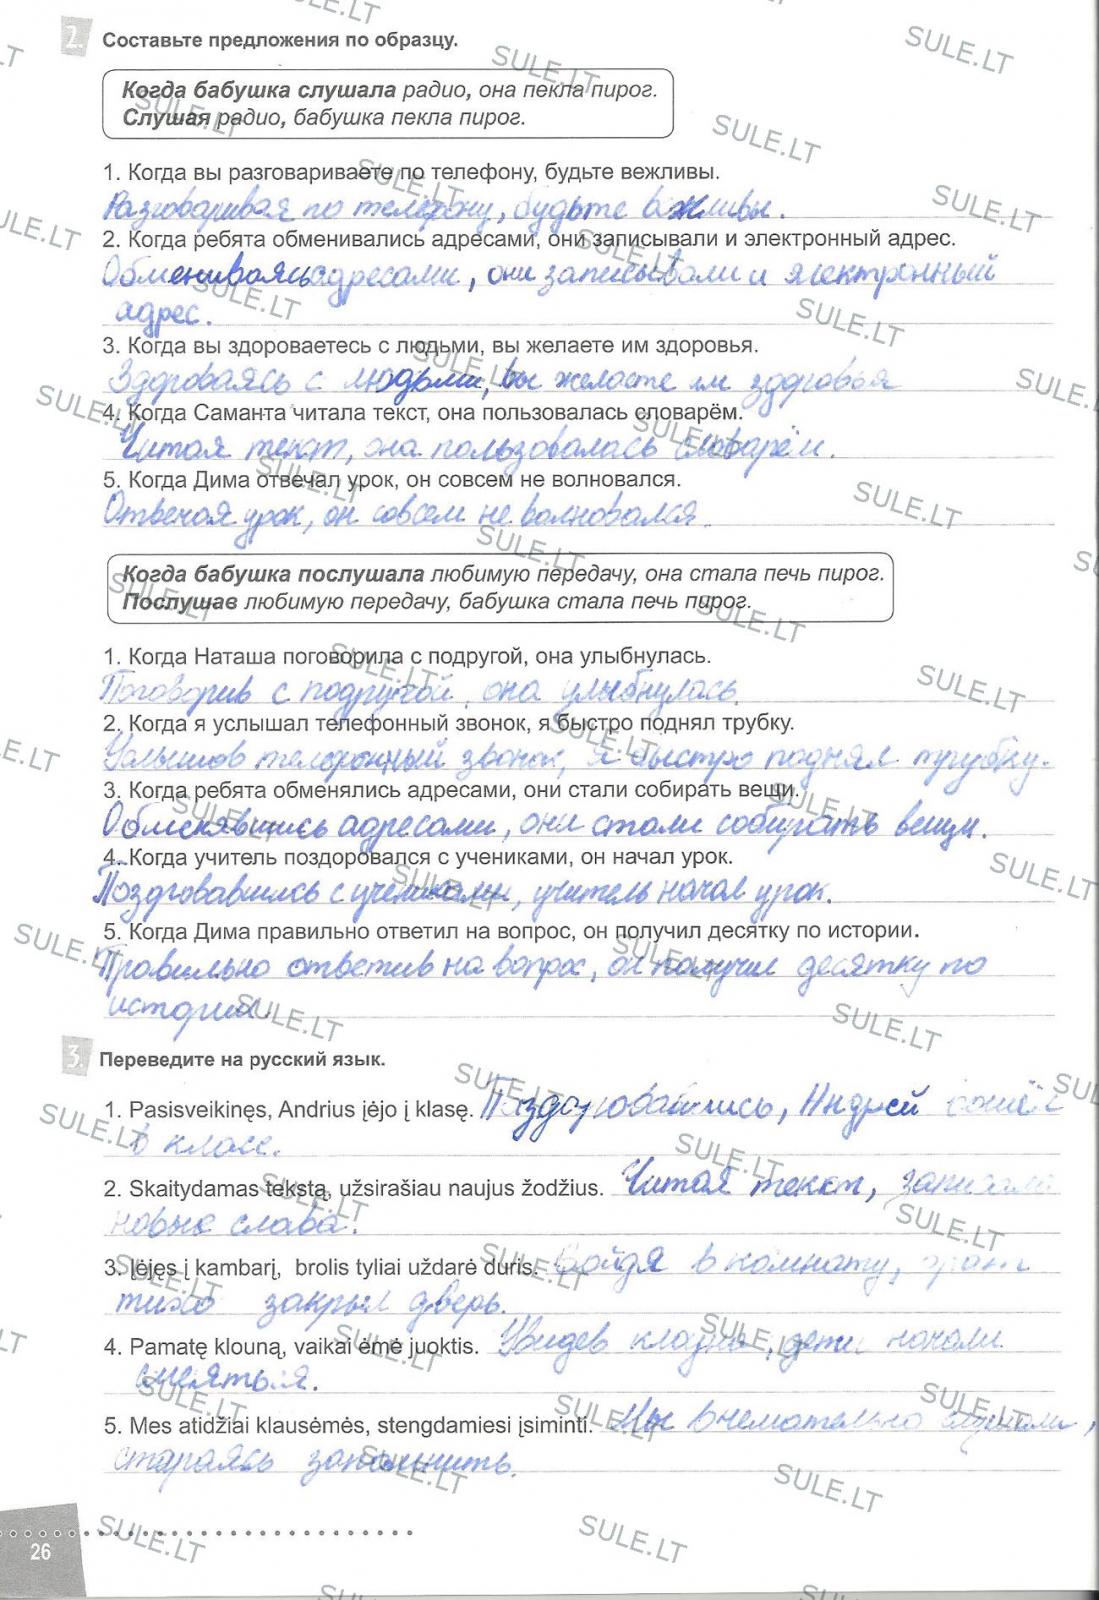 2. Составьте предложения по образцу.
Когда бабушка слушала радио, она пекла пирог.
Слушая радио, бабушка пекла пирог.
1. Когда вы разговариваете по телефону, будьте вежливы.
Разговаривая по телефону, будьте вежливы.
2. Когда ребята обменивались адресами, они записывали и электронный адрес.
Обмениваясь адресами, они записывали и электронный
адрес.
3. Когда вы здороваетесь с людьми, вы желаете им здоровья.
Здороваясь с людьми, вы желаете им здоровья
4. Когда Саманта читала текст, она пользовалась словарём.
Читая текст, она пользовалась словарём.
5. Когда Дима отвечал урок, он совсем не волновался.
Отвечая урок, он совсем не волновался.
Когда бабушка послушала любимую передачу, она стала печь пирог.
Послушав любимую передачу, бабушка стала печь пирог.
1. Когда Наташа поговорила с подругой, она улыбнулась.
Поговорив с подругой, она улыбнулась.
2. Когда я услышал телефонный звонок, я быстро поднял трубку.
Услышав телефонный звонок, я быстро поднял трубку.
3. Когда ребята обменялись адресами, они стали собирать вещи.
Обменявшись адресами, они стали собирать вещи.
4. Когда учитель поздоровался с учениками, он начал урок.
Поздоровавшись с учениками, учитель начал урок.
5. Когда Дима правильно ответил на вопрос, он получил десятку по истории.
Правильно ответив на вопрос, он получил десятку по
истории.
3. Переведите на русский язык.
1. Pasisveikinęs, Andrius įėjo į klasę. Поздоровавшись, Андрей вошёл
в класс.
2. Skaitydamas tekstą, užsirašiau naujus žodžius. Читая текст, записала
новые слова.
3. Įėjęs į kambarį, brolis tyliai uždarė duris. Войдя в комнату, брат
тихо закрыл дверь.
4. Pamatę klouną, vaikai ėmė juoktis. Увидев клоуна, дети начали
смеяться.
5. Mes atidžiai klausėmės, stengdamiesi įsiminti. Мы внемательно слушали,
стараясь запомнить.
26
SULE.LT